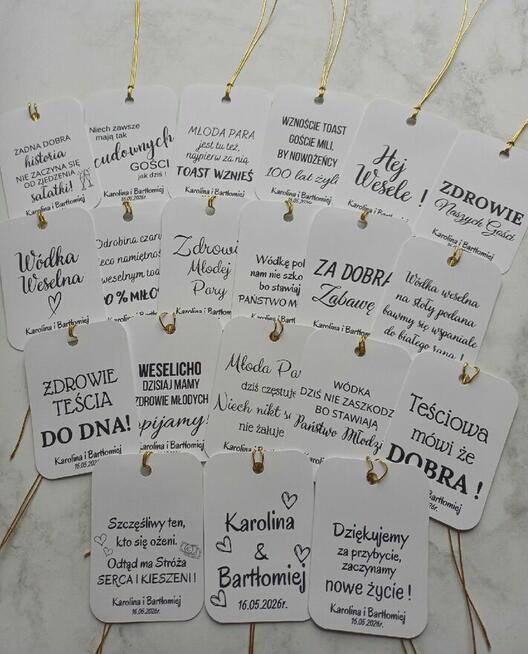 ŻADNA DOBRA
historia
NIE ZACZYNA SIĘ
OD ZJEDZENIA
sałatki!
Karolina i Bartłomiej
Niech zawsze
mają tak
cudownych
GOŚCI
jak dziś!
Karolina i Bartłomiej
16.05.2026r.
MŁODA PARA
jest tu też,
najpierw za nią
TOAST WZNIEŚ
Karolina i Bartłomiej
WZNOŚCIE TOAST
GOŚCIE MILI,
BY NOWOŻEŃCY
100 lat żyli
Karolina i Bartłomiej
Hej
Wesele!
Karolina i Bartłomiej
ZDROWIE
Naszych Gości
Karolina i Bartłomiej
Wódka
Weselna
Karolina i Bartłomiej
Odrobina czar
eco namiętnoś
weselnym toa
0% MIŁO
Karolina i Bartł
Zdrowi
Młodej
Pary
Karolina i Bartłomiej
Wódkę pol
nam nie szko
bo stawiaj
PAŃSTWO M
Karolina i Bartł
ZA DOBRĄ
Zabawę
Karolina i Bartłomiej
Wódka weselna
na stoły podana
bawmy się wspaniale
do białego rana!
ZDROWIE
TEŚCIA
DO DNA!
Karolina i Bartłomiej
16.05.2026r.
WESELICHO
DZISIAJ MAMY
ZDROWIE MŁODYCH
pijamy!
Karolina i Bartłomiej
Młoda Pa
dziś częstuje
Niech nikt
nie żałuje
WÓDKA
DZIŚ NIE ZASZKODZ
BO STAWIAJĄ
Państwo Młodzi
Karolina i Bartłomiej
Teściowa
mówi że
DOBRA!
Karolina i Bartłomiej
Szczęśliwy ten,
kto się ożeni.
Odtąd ma Stróża
SERCA I KIESZENI!
Karolina i Bartłomiej
16.05.2026r.
Karolina
&
Bartłomiej
16.05.2026r.
Dziękujemy
za przybycie,
zaczynamy
nowe życie!
Karolina i Bartłomiej
16.05.2026r.